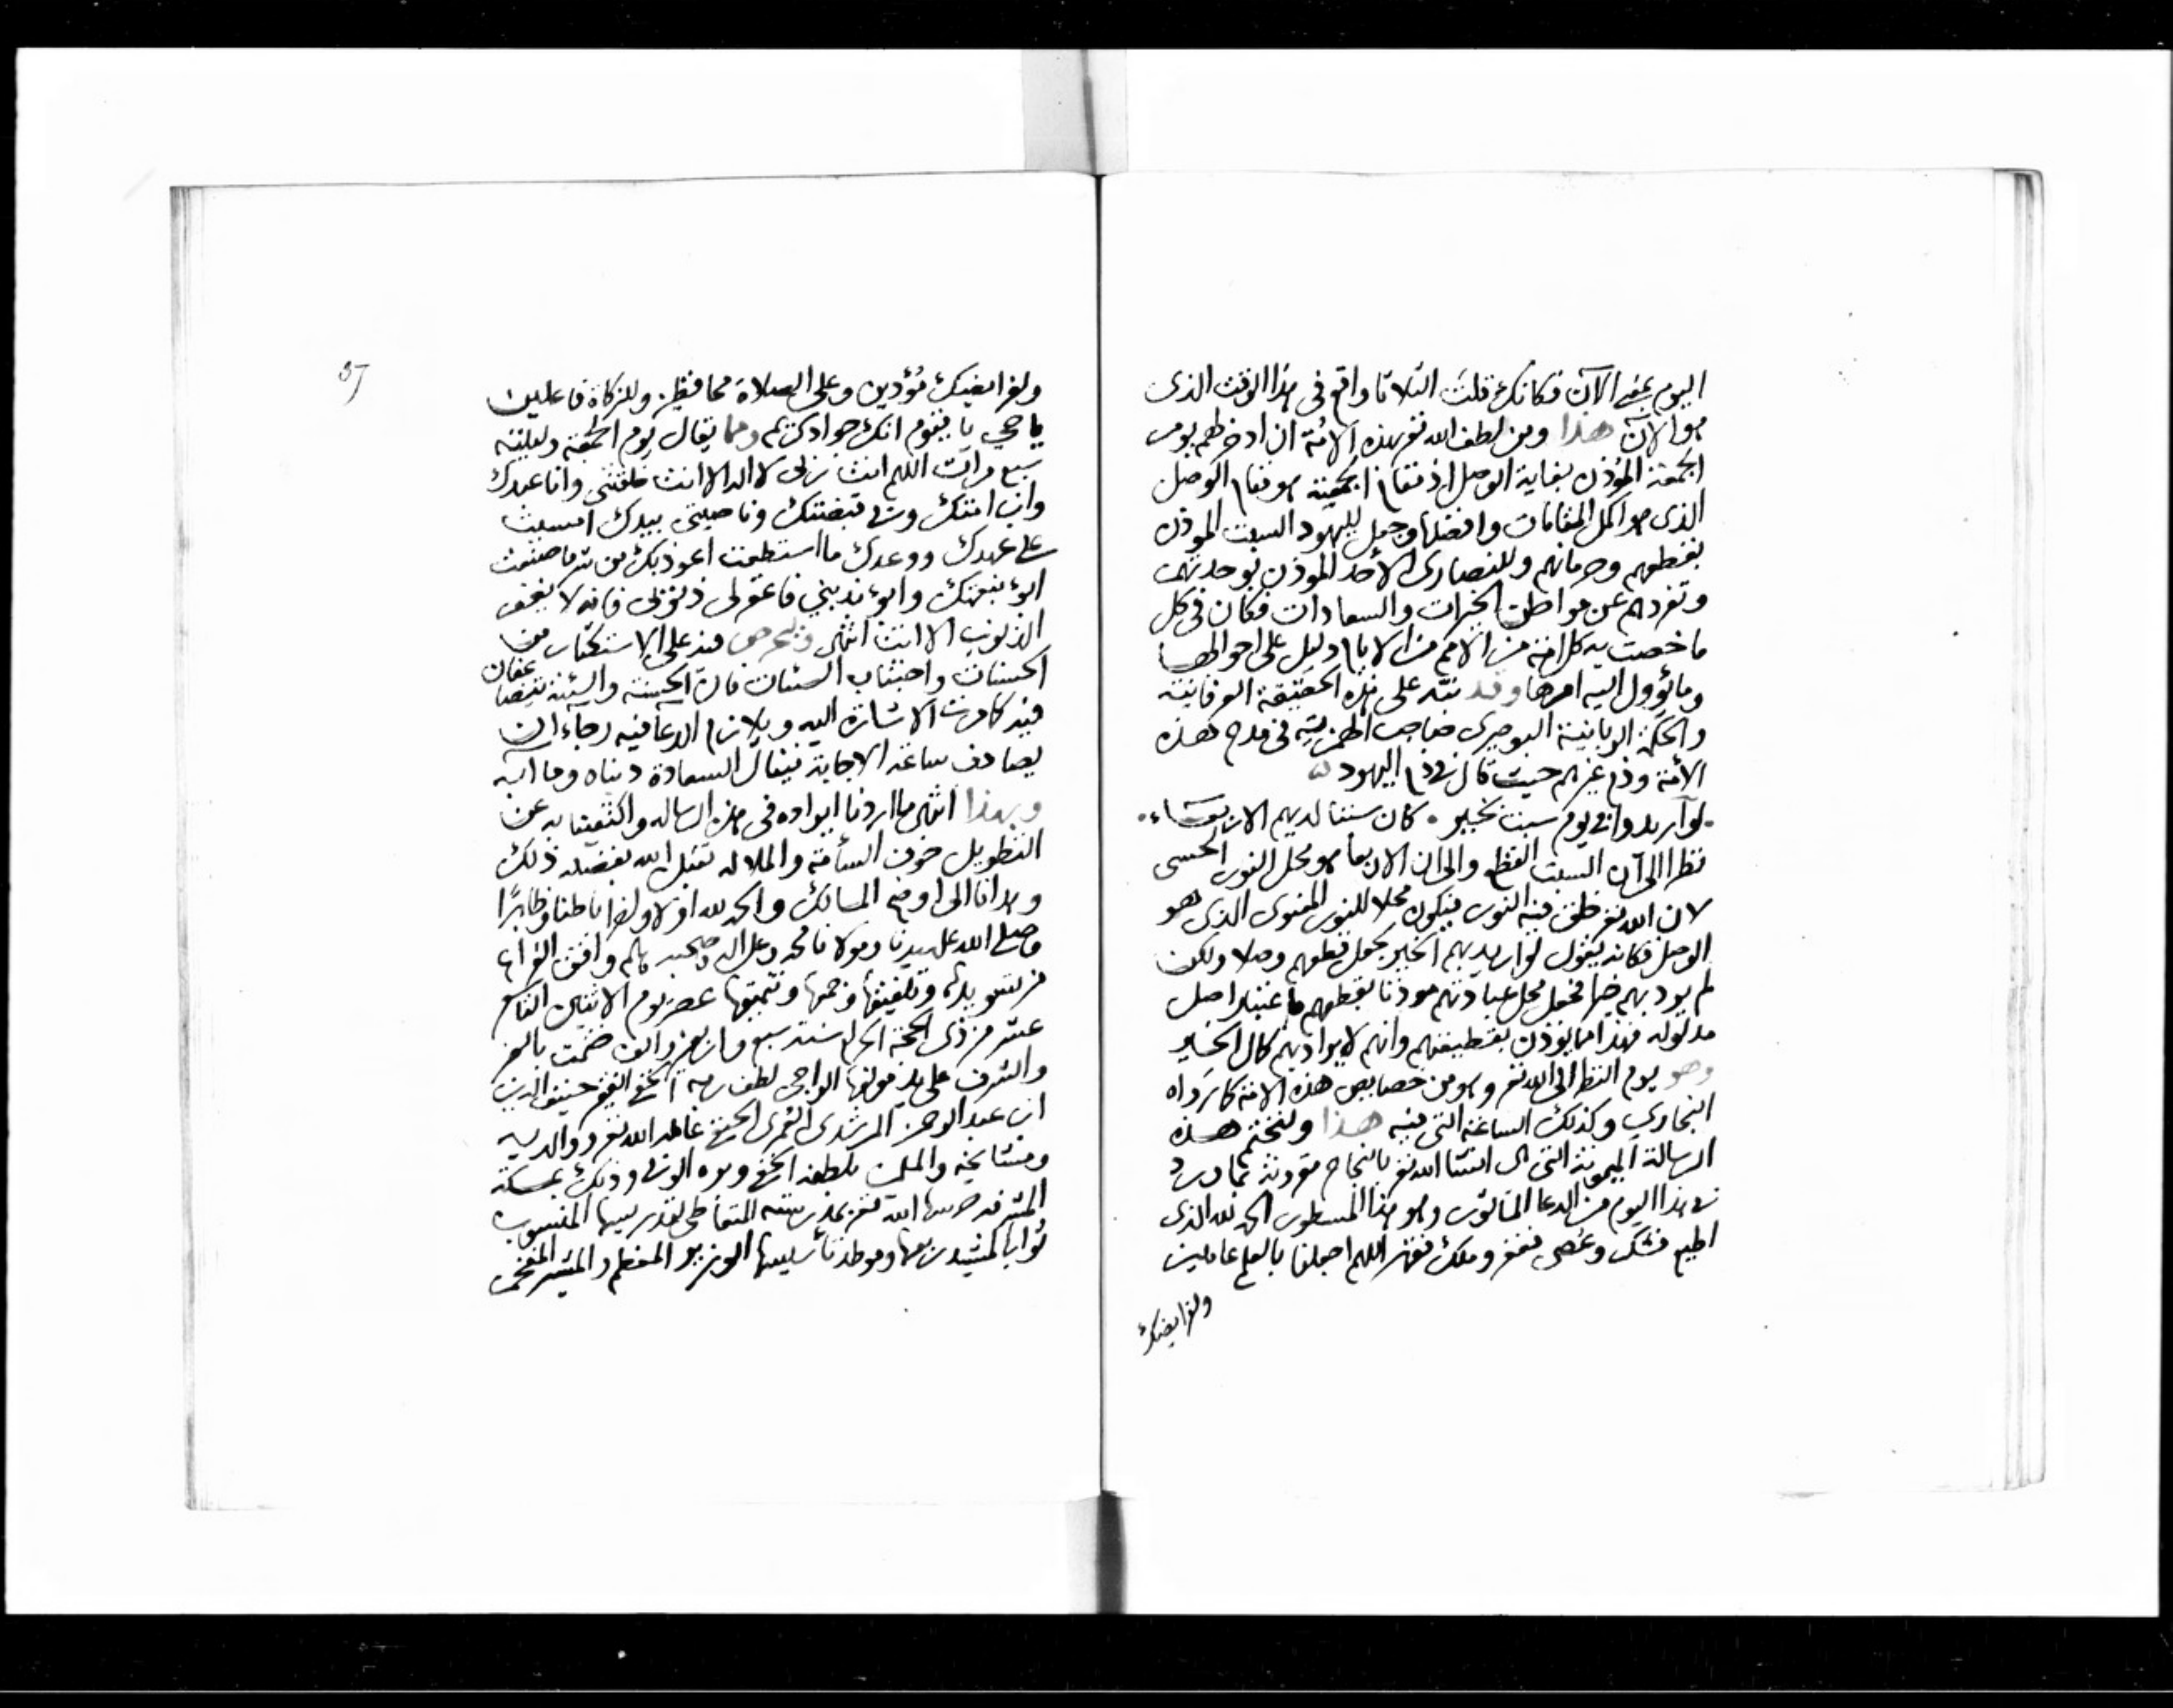 اليوم بمعنى الآن فكانك قلت الثلاثا واقع فى هذا الوقت الذى
هو الآن هذا ومن لطف الله تع بهذه الامة ان ادخر لهم يوم
الجمعة المؤذن بغاية الوصل اذ مقام الجمعية هو مقام الوصل
الذى هو اكمل المقامات وافضلها وجعل لليهود السبت المؤذن
بقطعهم وحرمانهم وللنصارى الأحد المؤذن بوحدتهم
وتفردهم عن مواطن الخيرات والسعادات فكان فى كل
ما خصت به كل امة من الامم من الايام دليل على احوالها
وما يؤول اليه امرها وقد نبّه على هذه الحقيقة العرفانية
والحكمة الربانية البوصيرى صاحب الهمزية فى مدح هذه
الأمة وذم غيرهم حيث قال فى ذم اليهود
لو أريدوا فى يوم سبت بخير . كان سبتا لديهم الاربعاء .
نظرا الى ان السبت القطع والى ان الاربعا هو محل النور الحسى
لان الله تع خلق فيه النور فيكون محلا للنور المعنوى الذى هو
الوصل فكانه يقول لو اريد بهم الخير لجعل قطعهم وصلا ولكن
لم يرد بهم خيرا فجعل محل عبادتهم موذنا بقطعهم باعتبار اصل
مدلوله فهذا مما يؤذن بقطيعتهم وانهم لا يراد بهم كمال الخير
وهو يوم النظر الى الله تع وهو من خصايص هذه الامة كما رواه
البخارى وكذلك الساعة التى فيه هذا ولنختم هذه
الرسالة الميمونة التى ان شا الله تع بالنجاح مقرونة بما ورد
فى هذا اليوم من الدعا الماثور وهو هذا المسطور الحمد لله الذى
اطيع فشكر وعصى فغفر وملك فقهر اللهم اجعلنا بالعلم عاملين
ولفرايضك
37
ولفرايضك مؤدين وعلى الصلاة محافظين وللزكاة فاعلين
يا حى يا قيوم انك جواد كريم ومما يقال يوم الجمعة وليلته
سبع مرات اللهم انت ربى لا اله الا انت خلقتنى وانا عبدك
وابن امتك وفى قبضتك وناصيتى بيدك امسيت
على عهدك ووعدك ما استطعت اعوذ بك من شر ما صنعت
ابوء بنعمتك وابوء بذنبى فاغفر لى ذنوبى فانه لا يغفر
الذنوب الا انت انتهى وليحرص فيه على الاستكثار من
الحسنات واجتناب السيئات فان الحسنة والسيئة تتضاعفان
فيه كما مرت الاشارة اليه ويلازم الدعا فيه رجاء ان
يصادف ساعة الاجابة فينال السعادة دنياه ومآبه
وبهذا انتهى ما اردنا ايراده فى هذه الرسالة واكتفينا به عن
التطويل خوف السآمة والملالة تقبل الله بفضله ذلك
وهدانا الى اوضح المسالك والحمد لله اولا واخرا باطنا وظاهرًا
وصلى الله على سيدنا ومولانا محمد وعلى اله وصحبه وسلم وافق الفراغ
من تسويدها وتلفيقها وجمعها وتنميقها عصر يوم الاثنين التاسع
عشر من ذى الحجة الحرام سنة سبع واربعين والف ختمت بالعز
والشرف على يد مولفها الراجى لطف ربه الخفى الفقير حنيف الدين
ابن عبد الرحمن المرشدى العمرى الحنفى عاملهم الله تع ووالديه
ومشايخه والمسلمين بلطفه الخفى وبره الوفى وذلك بمكة
المشرفة حرسها الله تع بمدرسته المتعاطى لتدريسها المنسوب
ثوابا لمشيد ربعها وموطد تأسيسها الوزير المعظم والمشير المفخم